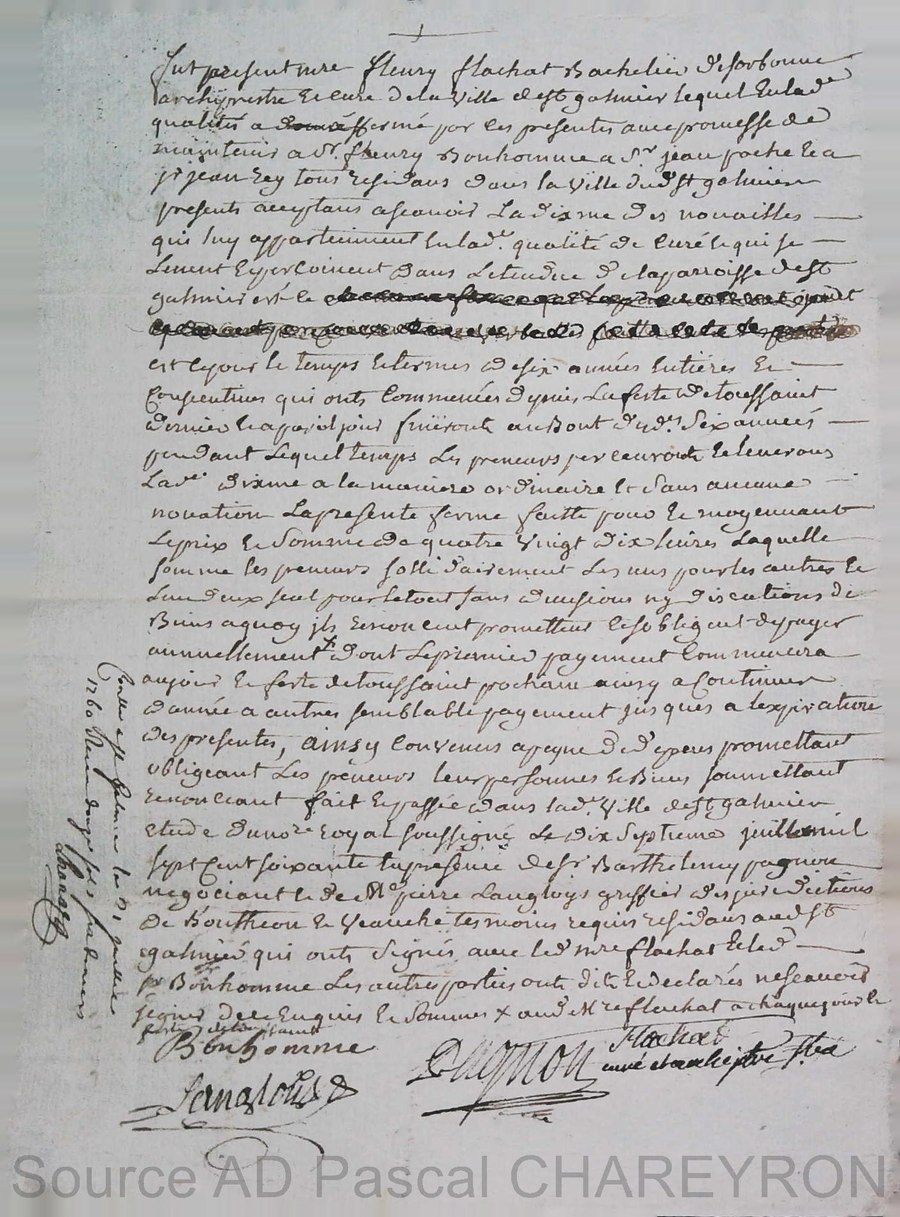 fut present mre fleury flachat Bachelier de sorbonne
archiprestre et cure de la Ville de st galmier lequel En lade
qualités a affermé par les presentes avec promesse de
maintenir a sr. fleury Bonhomme a sr jean poche et a
sr jean Rey tous residans dans la Ville dud st galmier
presents acceptans ascavoir La dixme des novailles
qui luy appartiennent En lad. qualité de curé et qui se
Levent et percoivent dans Letendue de la parroisse de st
galmier
est ce pour le temps et termes de six années Entieres Et
Consecutives qui onts Commencées depuis La feste de toussaint
dernier et a pareil jour finiront au Bout desd. six années
pendant lequel temps Les preneurs percevront et leverons
Lade dixme a la maniere ordinaire Et sans aucune
novation La presente ferme faitte pour et moyennant
Le prix et somme de quatre vingt dix livres Laquelle
somme les preneurs sollidairement Les uns pour les autres Et
L'un deux seul pour le tout sans divisions ny discutions de
Biens a quoy ils renoncent promettent et sobligent de payer
annuellement x dont Le premier payement Commencera
aujour et feste de toussaint prochain ainsy a Continuer
d'année a autres semblable payement jusques a lexpiration
des presentes, ainsy Convenus a peyne de depens promettant
obligeant Les preneurs leurs personnes et Biens soummettant
renonceant fait et passée dans lade Ville de st galmier
etude du nore royal soussigné Le dix septieme juillet mil
sept Cent soixante En presence de sr Barthelemy pagnon
negociant et de Me pierre Langloys greffier des juridictions
de Bouttheon et Veauche temoins requis residans aud st
galmier qui onts signés avec led mre flachat et led
sr Bonhomme Les autres parties ont dit et declarés ne scavoir
signer de ce Enquis Et sommés x aud Mre flachat a chaque jour et
feste de toussaint
Bonhomme
Pagnon
Flachat
curé et archiptre
Langlois
Conllé a st Galmier le juillet
1760 Recu douze sols
Source AD Pascal CHAREYRON